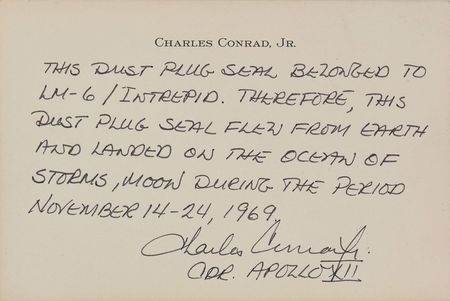 CHARLES CONRAD, JR.
THIS DUST PLUG SEAL BELONGED TO
LM-6 / INTREPID. THEREFORE, THIS
DUST PLUG SEAL FLEW FROM EARTH
AND LANDED ON THE OCEAN OF
STORMS, MOON DURING THE PERIOD
NOVEMBER 14-24, 1969
Charles Conrad Jr.
CDR. APOLLO XII